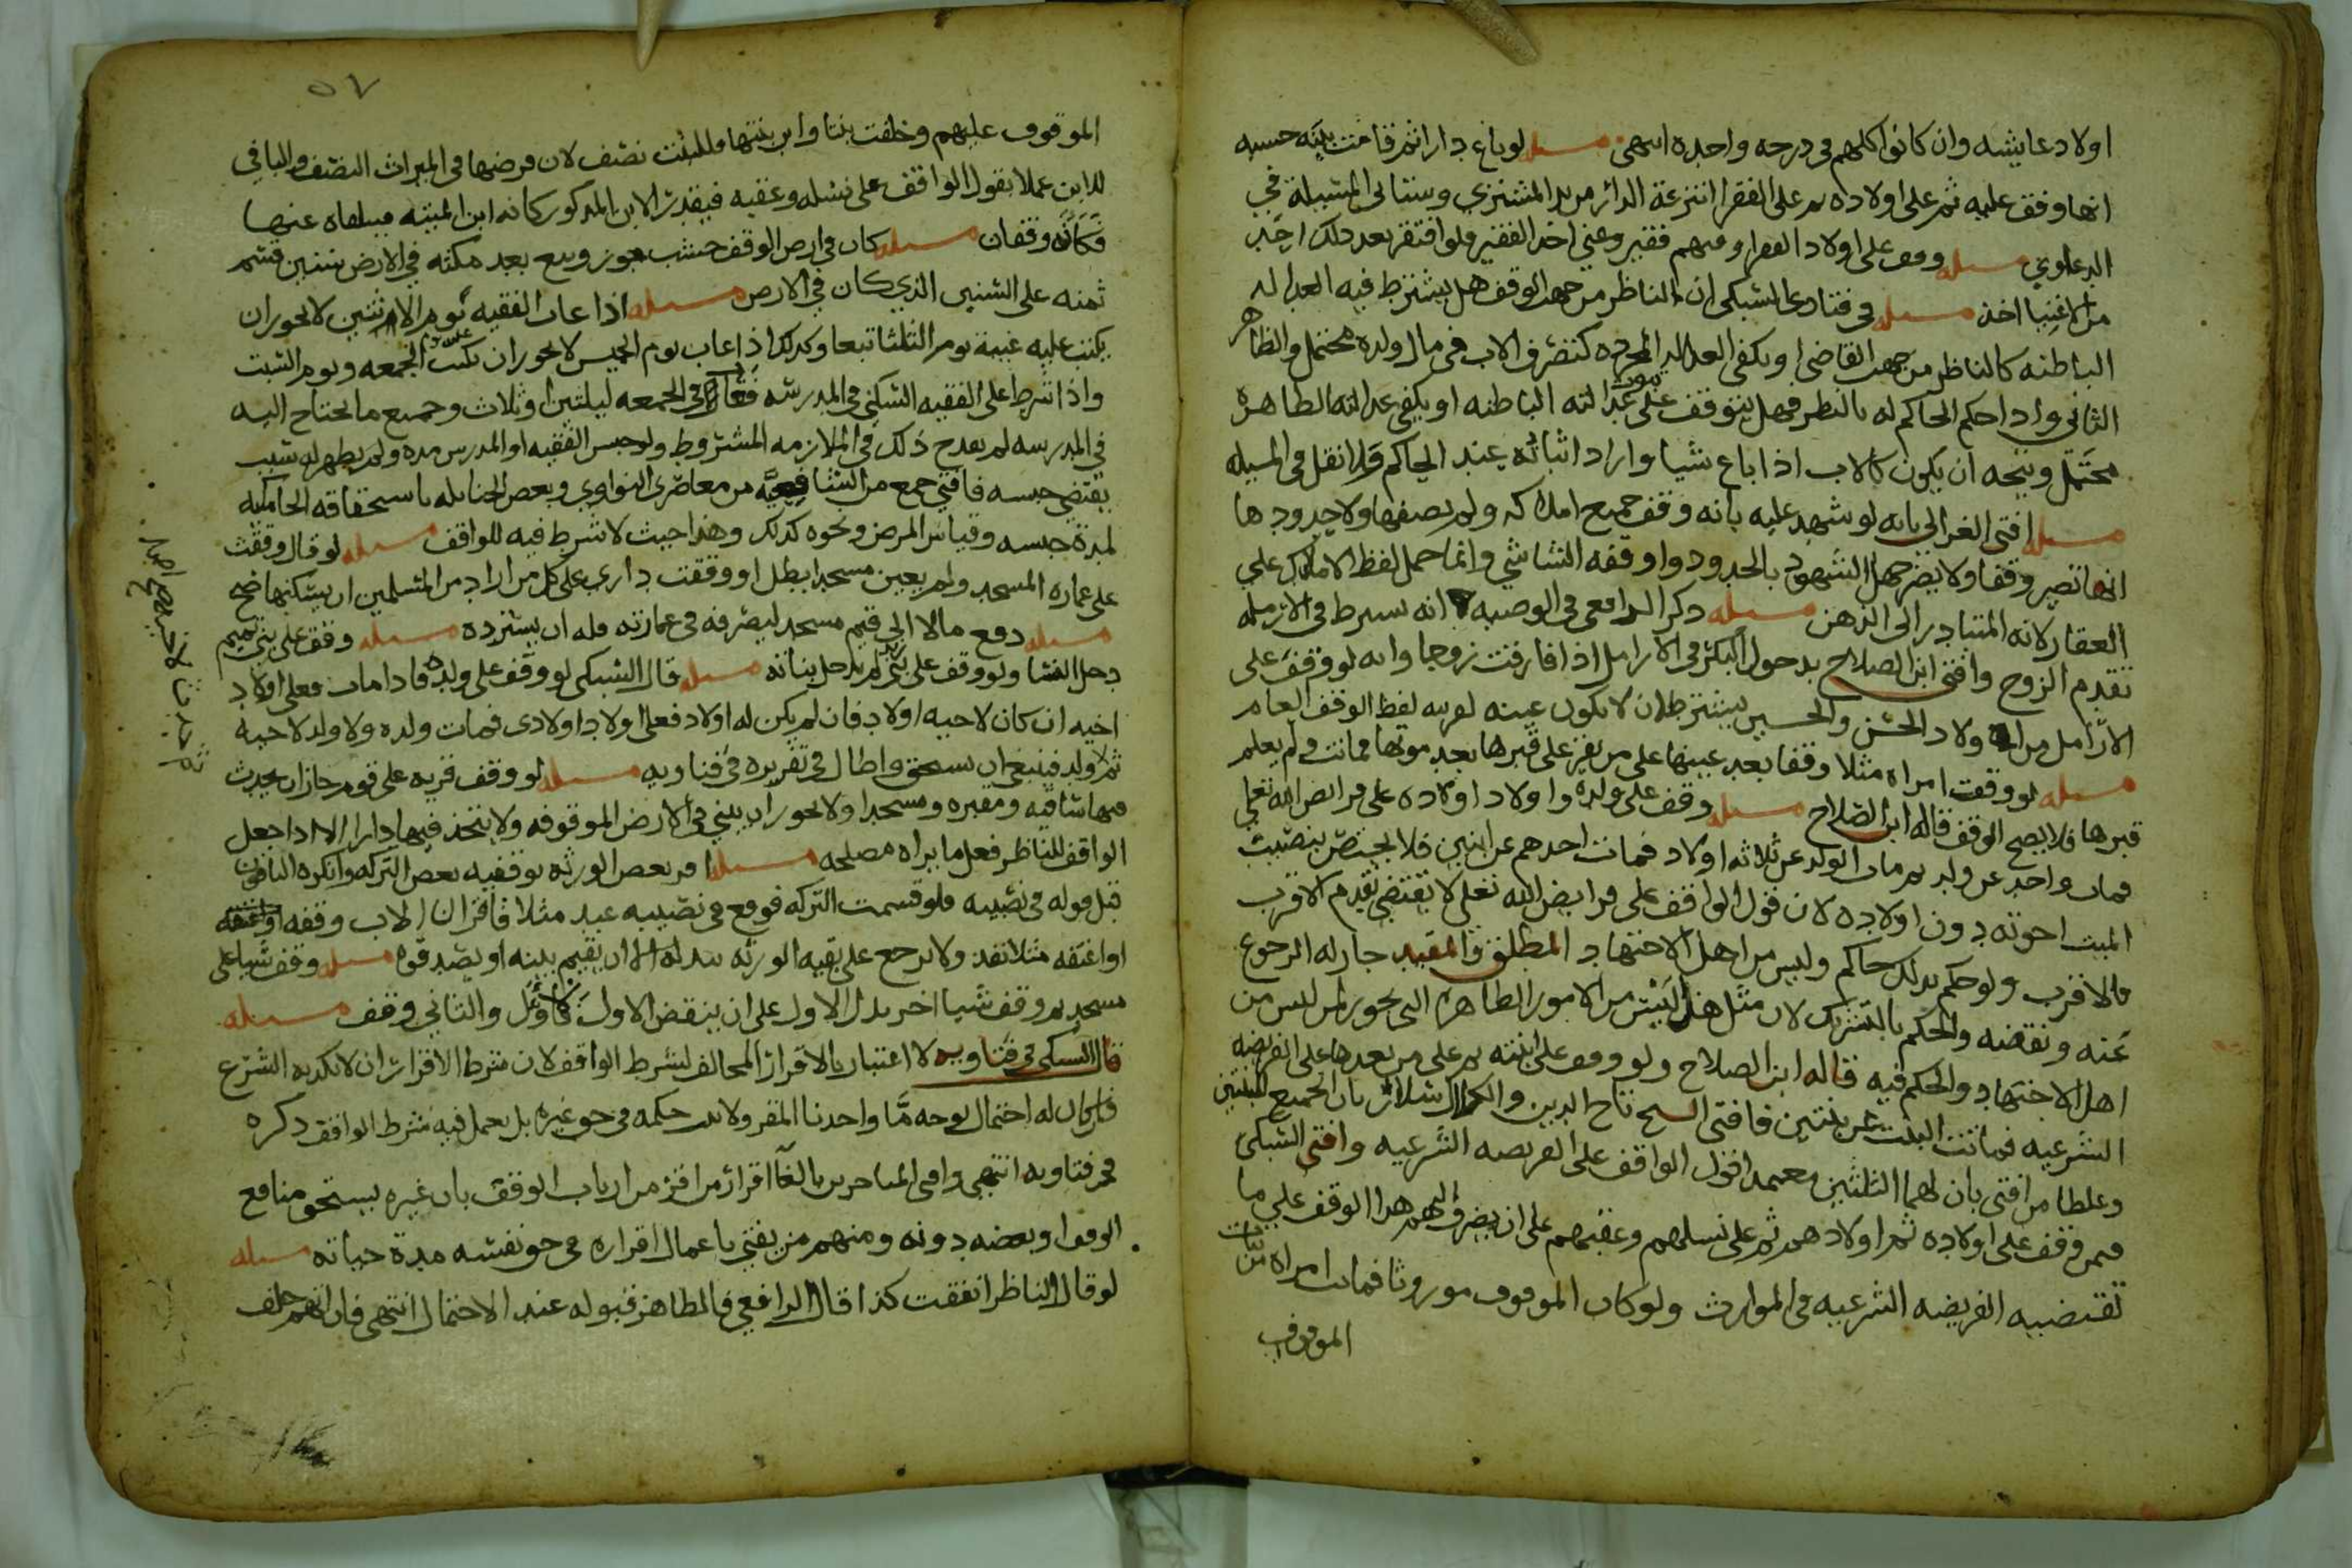 اولاد عايشه وان كانوا كلهم في درجه واحده انتهى مسله لو باع دارا ثم قامت بينه حسبه
انها وقف عليه ثم على اولاده ثم على الفقرا انتزعة الدار من يد المشتري وستاتي المسئلة في
الدعاوي مسله وقف على اولاد الفقرا ومنهم فقير وغني اخذ الفقير فلو افتقر بعد ذلك احد
من الاغنيا اخذ مسله في فتاوى السبكي ان الناظر من جهه الوقف هل يشترط فيه العداله
الباطنه كالناظر من جهه القاضي او يكفي العداله المجرده كتصرف الاب في مال ولده محتمل والظاهر
الثاني واذا حكم الحاكم له بالنظر فهل يتوقف على ثبوت عدالته الباطنه او يكفي عدالته الظاهره
محتمل ويتجه ان يكون كالاب اذا باع شيا واراد اثباته عند الحاكم ولا نقل في المسله
مسله افتى الغزالي بانه لو شهد عليه بانه وقف جميع املاكه ولم يصفها ولا حدودها
انها تصير وقفا ولا يضر جهل الشهود بالحدود ووافقه الشاشي وانما حمل لفظ الاملاك على
العقار لانه المتبادر الى الذهن مسله ذكر الرافعي في الوصيه انه يشترط في الارمله
تقدم الزوج وافتى ابن الصلاح بدخول البكر في الارامل اذا فارقت زوجا وانه لو وقف على
الارامل من اولاد الحسن والحسين يشترط ان لا تكون عينه لقرينه لفظ الوقف العام
مسله لو وقفت امراه مثلا وقفا بعد عينها على من يقرا على قبرها بعد موتها فماتت ولم يعلم
قبرها فلا يصح الوقف قاله ابن الصلاح مسله وقف على ولده واولاد اولاده على فرائض الله تعالى
فمات واحد عن ولد ثم مات الولد عن ثلاثه اولاد فمات احدهم عن ابنين فلا يختص بنصيب
الميت اخوته دون اولاده لان قول الواقف على فرايض الله تعالى لا يقتضي تقدم الاقرب
فالاقرب ولو حكم بذلك حاكم وليس من اهل الاجتهاد المطلق والمقيد جاز له الرجوع
عنه ونقضه والحكم بالتشريك لان مثل هذا ليس من الامور الظاهره التي يجوز لمن ليس من
اهل الاجتهاد والحكم فيه قاله ابن الصلاح ولو وقف على ابنته ثم على من بعدها على الفريضه
الشرعيه فماتت البنت عن بنتين فافتى الشيخ تاج الدين والكمال سلار بان الجميع للبنتين
وغلطا من افتى بان لهما الثلثين معتمدا قول الواقف على الفريضه الشرعيه وافتى السبكي
فيمن وقف على اولاده ثم اولادهم ثم على نسلهم وعقبهم على ان يصرف اليهم هذا الوقف على ما
تقتضيه الفريضه الشرعيه في الموارث ولو كان الموقوف موروثا فماتت امراه من بنات
الموقوف
٥٧
الموقوف عليهم وخلفت بنتا وابن بنتها فللبنت نصف لان فرضها في الميراث النصف والباقي
للابن عملا بقول الواقف على نسله وعقبه فيقدر الابن المذكور كانه ابن الميته فيتلقاه عنها
فكانه وقفان مسله كان في ارض الوقف خشب جوز وبيع بعد مكثه في الارض سنين قسم
ثمنه على السنين الذي كان في الارض مسله اذا غاب الفقيه يوم الاثنين لا يجوز ان
يكتب عليه غيبة يوم الثلاثا تبعا وكذلك اذا غاب يوم الخميس لا يجوز ان تكتب عليه الجمعه ويوم السبت
واذا شرط على الفقيه السكنى في المدرسه فغاب في الجمعه ليلتين او ثلاث وجميع ما يحتاج اليه
في المدرسه لم يقدح ذلك في الملازمه المشروط ولو حبس الفقيه او المدرس مده ولم يظهر له سبب
يقتضي حبسه فافتى جمع من الشافعيه من معاصري النواوي وبعض الحنابله باستحقاقه الجامكيه
لمدة حبسه وقياس المرض ونحوه كذلك وهذا حيث لا شرط فيه للواقف مسله لو قال وقفت
على عماره المسجد ولم يعين مسجدا بطل او وقفت داري على كل من اراد من المسلمين ان يسكنها صح
مسله دفع مالا الى قيم مسجد ليصرفه في عمارته فله ان يسترده مسله وقف على بني تميم
دخل النسا ولو وقف على بني زيد لم يدخل بناته مسله قال السبكي لو وقف على ولده فاذا مات فعلى اولاد
اخيه ان كان لاخيه اولاد فان لم يكن له اولاد فعلى اولاد اولادى فمات ولده ولا ولد لاخيه
ثم ولد فينبغي ان يستحق واطال في تقريره في فتاويه مسله لو وقف قريه على قوم جاز ان يحدث
فيها ساقيه ومقبره ومسجدا ولا يجوز ان يبني في الارض الموقوفه ولا يتخذ فيها دارا الا اذا جعل
الواقف للناظر فعل ما يراه مصلحه مسله اقر بعض الورثه بوقفيه بعض التركه وانكره الباقون
قبل قوله في نصيبه فلو قسمت التركه فوقع في نصيبه عبد مثلا فاقر ان الاب وقفه
او اعتقه مثلا نفذ ولا يرجع على بقيه الورثه ببدله الا ان يقيم بينه او يصدقوه مسله وقف شيا على
مسجد ثم وقف شيا اخر بدل الاول على ان ينقض الاول والثاني وقف مسله
قال السبكي في فتاويه لا اعتبار بالاقرار المخالف لشرط الواقف لان شرط الاقرار ان لا يكذبه الشرع
فان كان له احتمال بوجه ما واخذنا المقر ولا يثبت حكمه في حق غيره بل يعمل فيه شرط الواقف ذكره
في فتاويه انتهى وافتى المتاخرين بالغا اقرار من اقر من ارباب الوقف بان غيره يستحق منافع
الوقف او بعضه دونه ومنهم من يفتي باعمال اقراره في حق نفسه مدة حياته مسله
لو قال الناظر انفقت كذا قال الرافعي فالظاهر قبوله عند الاحتمال انتهى فان اتهم حلف